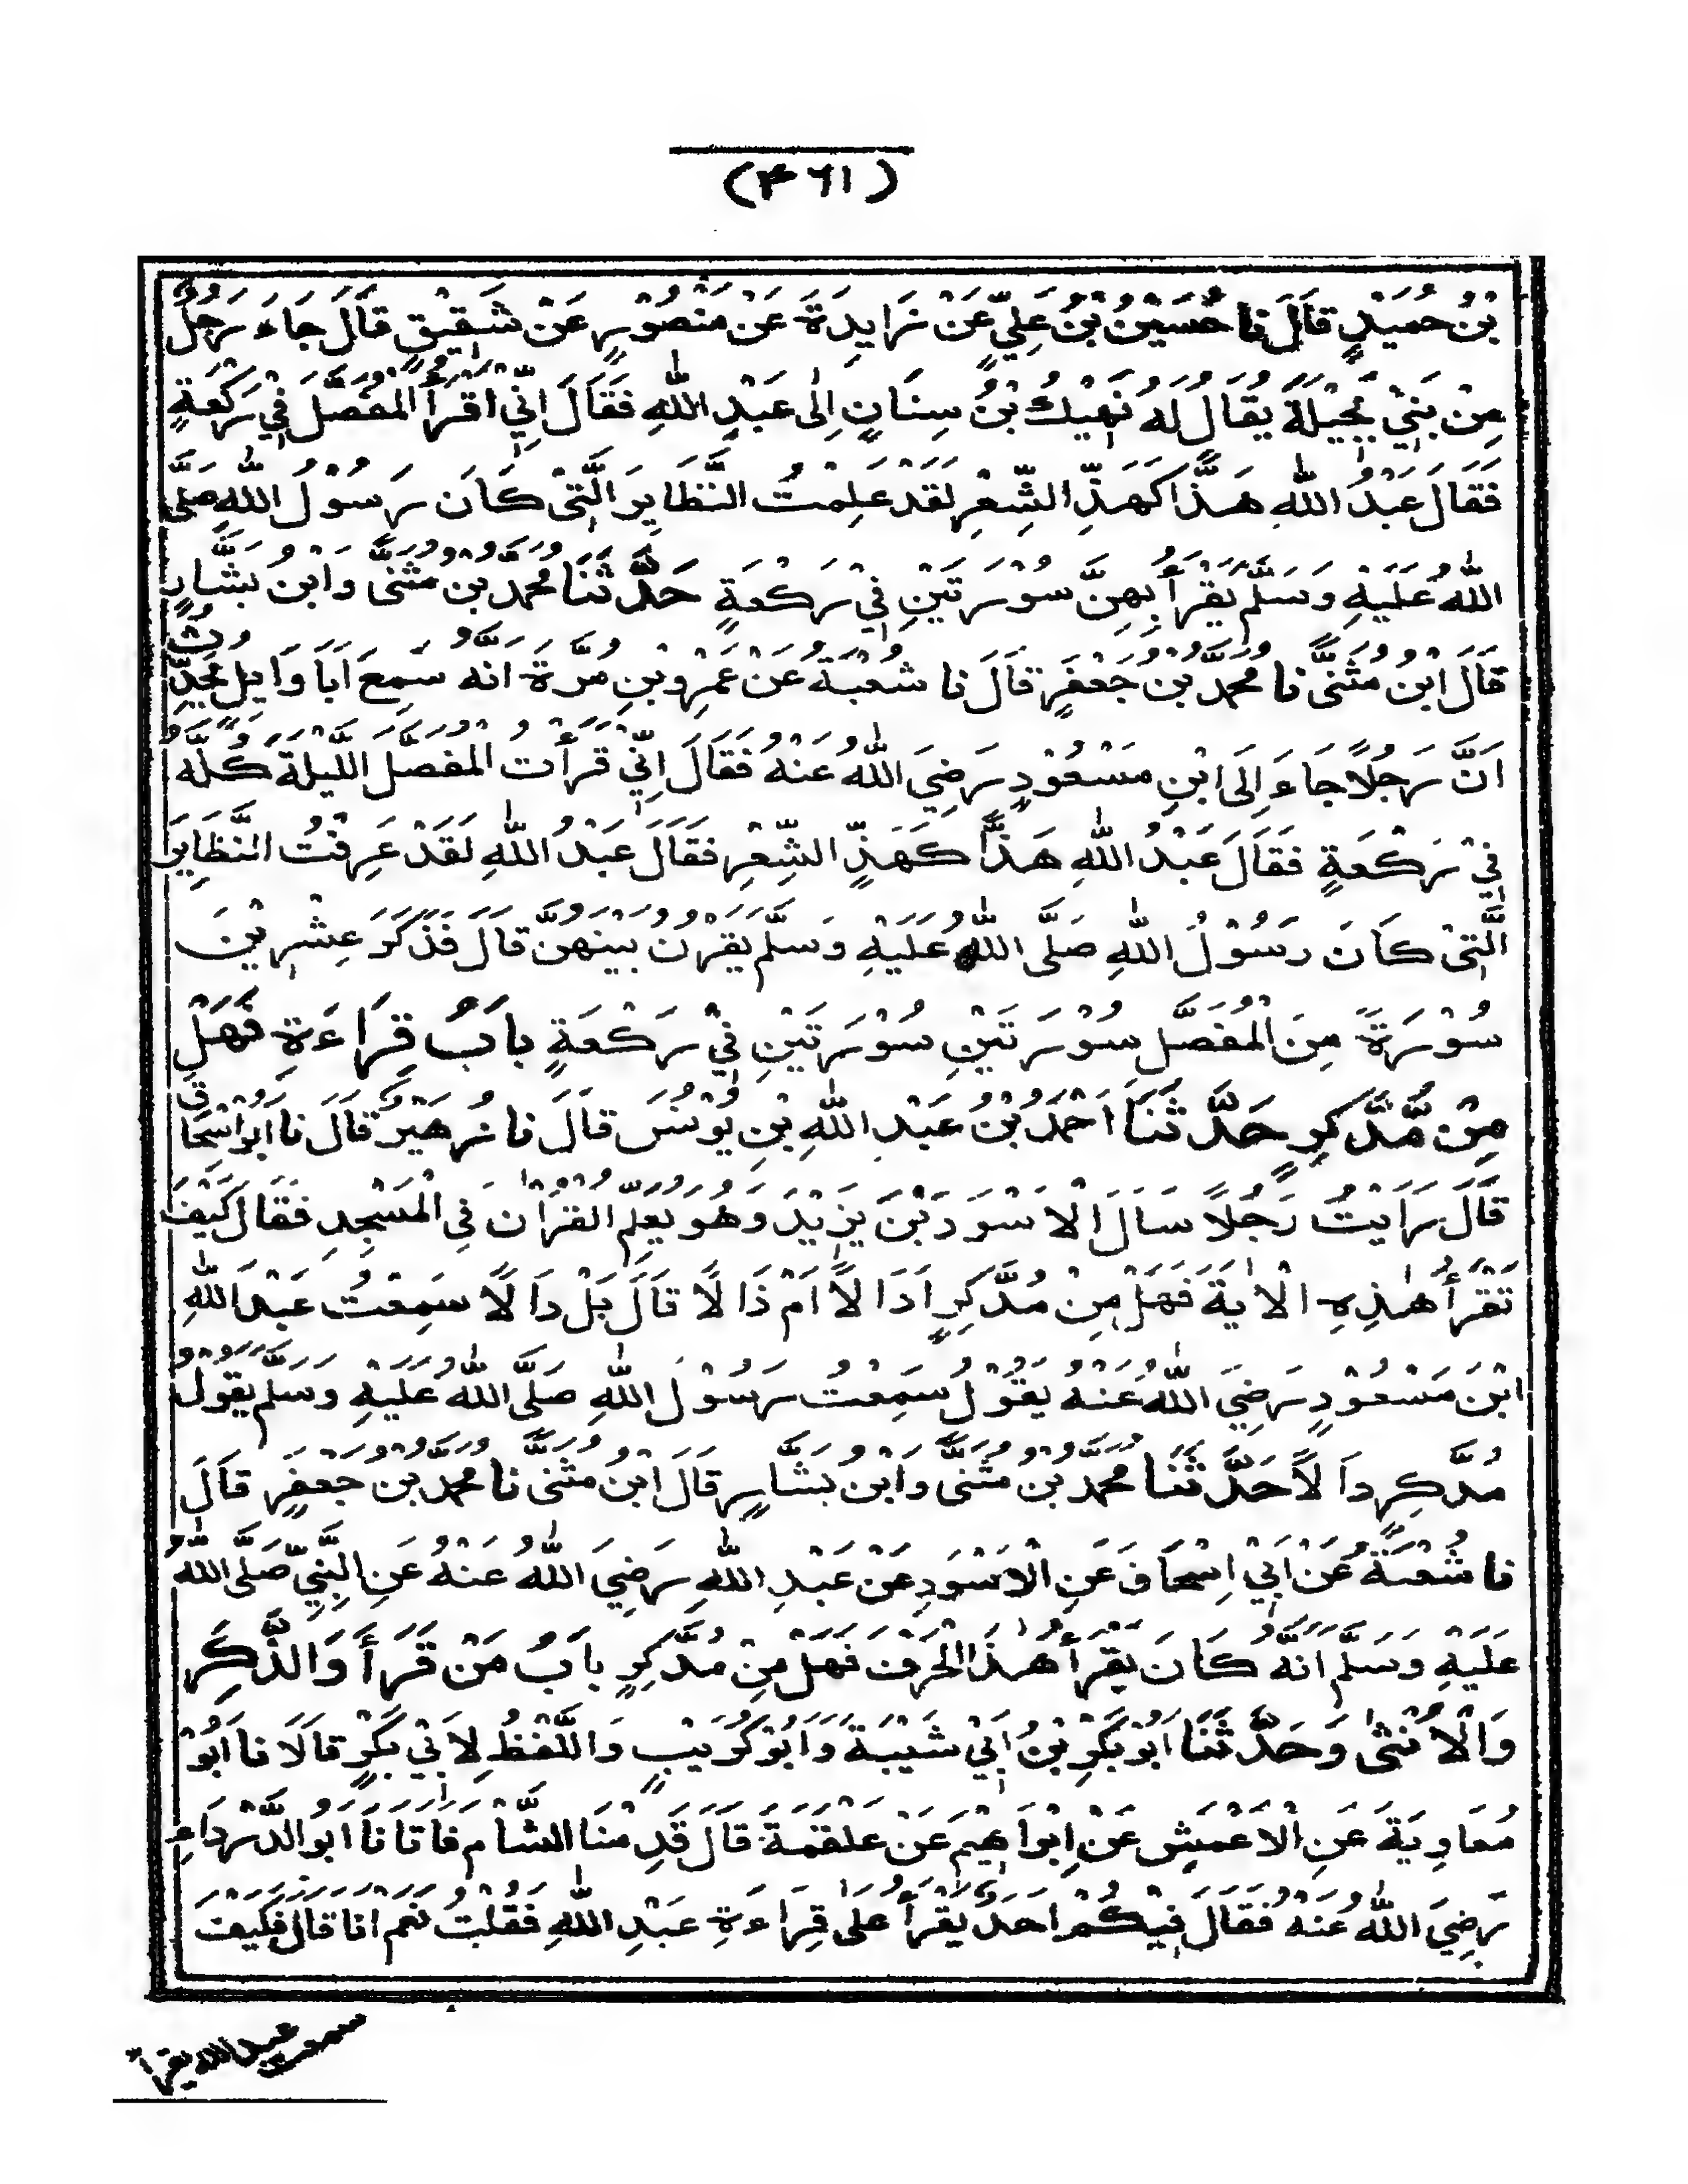 (۴۶۱)
بْنُ حُمَيْدٍ قَالَ نَا حُسَيْنُ بْنُ عَلِيٍّ عَنْ زَايِدَةَ عَنْ مَنْصُوْرٍ عَنْ شَقِيْقٍ قَالَ جَاءَ رَجُلٌ
مِنْ بَنِيْ بَجِيْلَةَ يُقَالُ لَهُ نَهِيْكُ بْنُ سِنَانٍ اِلٰى عَبْدِ اللّٰهِ فَقَالَ اِنِّيْ اَقْرَأُ الْمُفَصَّلَ فِيْ رَكْعَةٍ
فَقَالَ عَبْدُ اللّٰهِ هَذًّا كَهَذِّ الشِّعْرِ لَقَدْ عَلِمْتُ النَّظَايِرَ الَّتِيْ كَانَ رَسُوْلُ اللّٰهِ صَلَّى
اللّٰهُ عَلَيْهِ وَسَلَّمَ يَقْرَأُ بِهِنَّ سُوْرَتَيْنِ فِيْ رَكْعَةٍ حَدَّثَنَا مُحَمَّدُ بْنُ مُثَنَّى وَابْنُ بَشَّارٍ
قَالَ ابْنُ مُثَنَّى نَا مُحَمَّدُ بْنُ جَعْفَرٍ قَالَ نَا شُعْبَةُ عَنْ عَمْرِو بْنِ مُرَّةَ اَنَّهُ سَمِعَ اَبَا وَايِلٍ يُحَدِّثُ
اَنَّ رَجُلًا جَاءَ اِلَى ابْنِ مَسْعُوْدٍ رَضِيَ اللّٰهُ عَنْهُ فَقَالَ اِنِّيْ قَرَأْتُ الْمُفَصَّلَ اللَّيْلَةَ كُلَّهُ
فِيْ رَكْعَةٍ فَقَالَ عَبْدُ اللّٰهِ هَذًّا كَهَذِّ الشِّعْرِ فَقَالَ عَبْدُ اللّٰهِ لَقَدْ عَرِفْتُ النَّظَايِرَ
الَّتِيْ كَانَ رَسُوْلُ اللّٰهِ صَلَّى اللّٰهُ عَلَيْهِ وَسَلَّمَ يَقْرُنُ بَيْنَهُنَّ قَالَ فَذَكَرَ عِشْرِيْنَ
سُوْرَةً مِنَ الْمُفَصَّلِ سُوْرَتَيْنِ سُوْرَتَيْنِ فِيْ رَكْعَةٍ بَابُ قِرَاءَةِ فَهَلْ
مِنْ مُّدَّكِرٍ حَدَّثَنَا اَحْمَدُ بْنُ عَبْدِ اللّٰهِ بْنِ يُوْنُسَ قَالَ نَا زُهَيْرٌ قَالَ نَا اَبُوْ اِسْحَاقَ
قَالَ رَاَيْتُ رَجُلًا سَاَلَ الْاَسْوَدَ بْنَ يَزِيْدَ وَهُوَ يُعَلِّمُ الْقُرْاٰنَ فِي الْمَسْجِدِ فَقَالَ كَيْفَ
تَقْرَأُ هٰذِهِ الْاٰيَةَ فَهَلْ مِنْ مُدَّكِرٍ اَدَالًا اَمْ ذَالًا قَالَ بَلْ دَالًا سَمِعْتُ عَبْدَ اللّٰهِ
ابْنَ مَسْعُوْدٍ رَضِيَ اللّٰهُ عَنْهُ يَقُوْلُ سَمِعْتُ رَسُوْلَ اللّٰهِ صَلَّى اللّٰهُ عَلَيْهِ وَسَلَّمَ يَقُوْلُ
مُدَّكِرٍ دَالًا حَدَّثَنَا مُحَمَّدُ بْنُ مُثَنَّى وَابْنُ بَشَّارٍ قَالَ ابْنُ مُثَنَّى نَا مُحَمَّدُ بْنُ جَعْفَرٍ قَالَ
نَا شُعْبَةُ عَنْ اَبِيْ اِسْحَاقَ عَنِ الْاَسْوَدِ عَنْ عَبْدِ اللّٰهِ رَضِيَ اللّٰهُ عَنْهُ عَنِ النَّبِيِّ صَلَّى اللّٰهُ
عَلَيْهِ وَسَلَّمَ اَنَّهُ كَانَ يَقْرَأُ هٰذَا الْحَرْفَ فَهَلْ مِنْ مُدَّكِرٍ بَابُ مَنْ قَرَأَ وَالذَّكَرِ
وَالْاُنْثٰى وَحَدَّثَنَا اَبُوْ بَكْرِ بْنُ اَبِيْ شَيْبَةَ وَاَبُوْ كُرَيْبٍ وَاللَّفْظُ لِاَبِيْ بَكْرٍ قَالَا نَا اَبُوْ
مُعَاوِيَةَ عَنِ الْاَعْمَشِ عَنْ اِبْرَاهِيْمَ عَنْ عَلْقَمَةَ قَالَ قَدِمْنَا الشَّامَ فَاَتَانَا اَبُو الدَّرْدَاءِ
رَضِيَ اللّٰهُ عَنْهُ فَقَالَ فِيْكُمْ اَحَدٌ يَقْرَأُ عَلٰى قِرَاءَةِ عَبْدِ اللّٰهِ فَقُلْتُ نَعَمْ اَنَا قَالَ فَكَيْفَ
سمعت عبد الله يقرأ